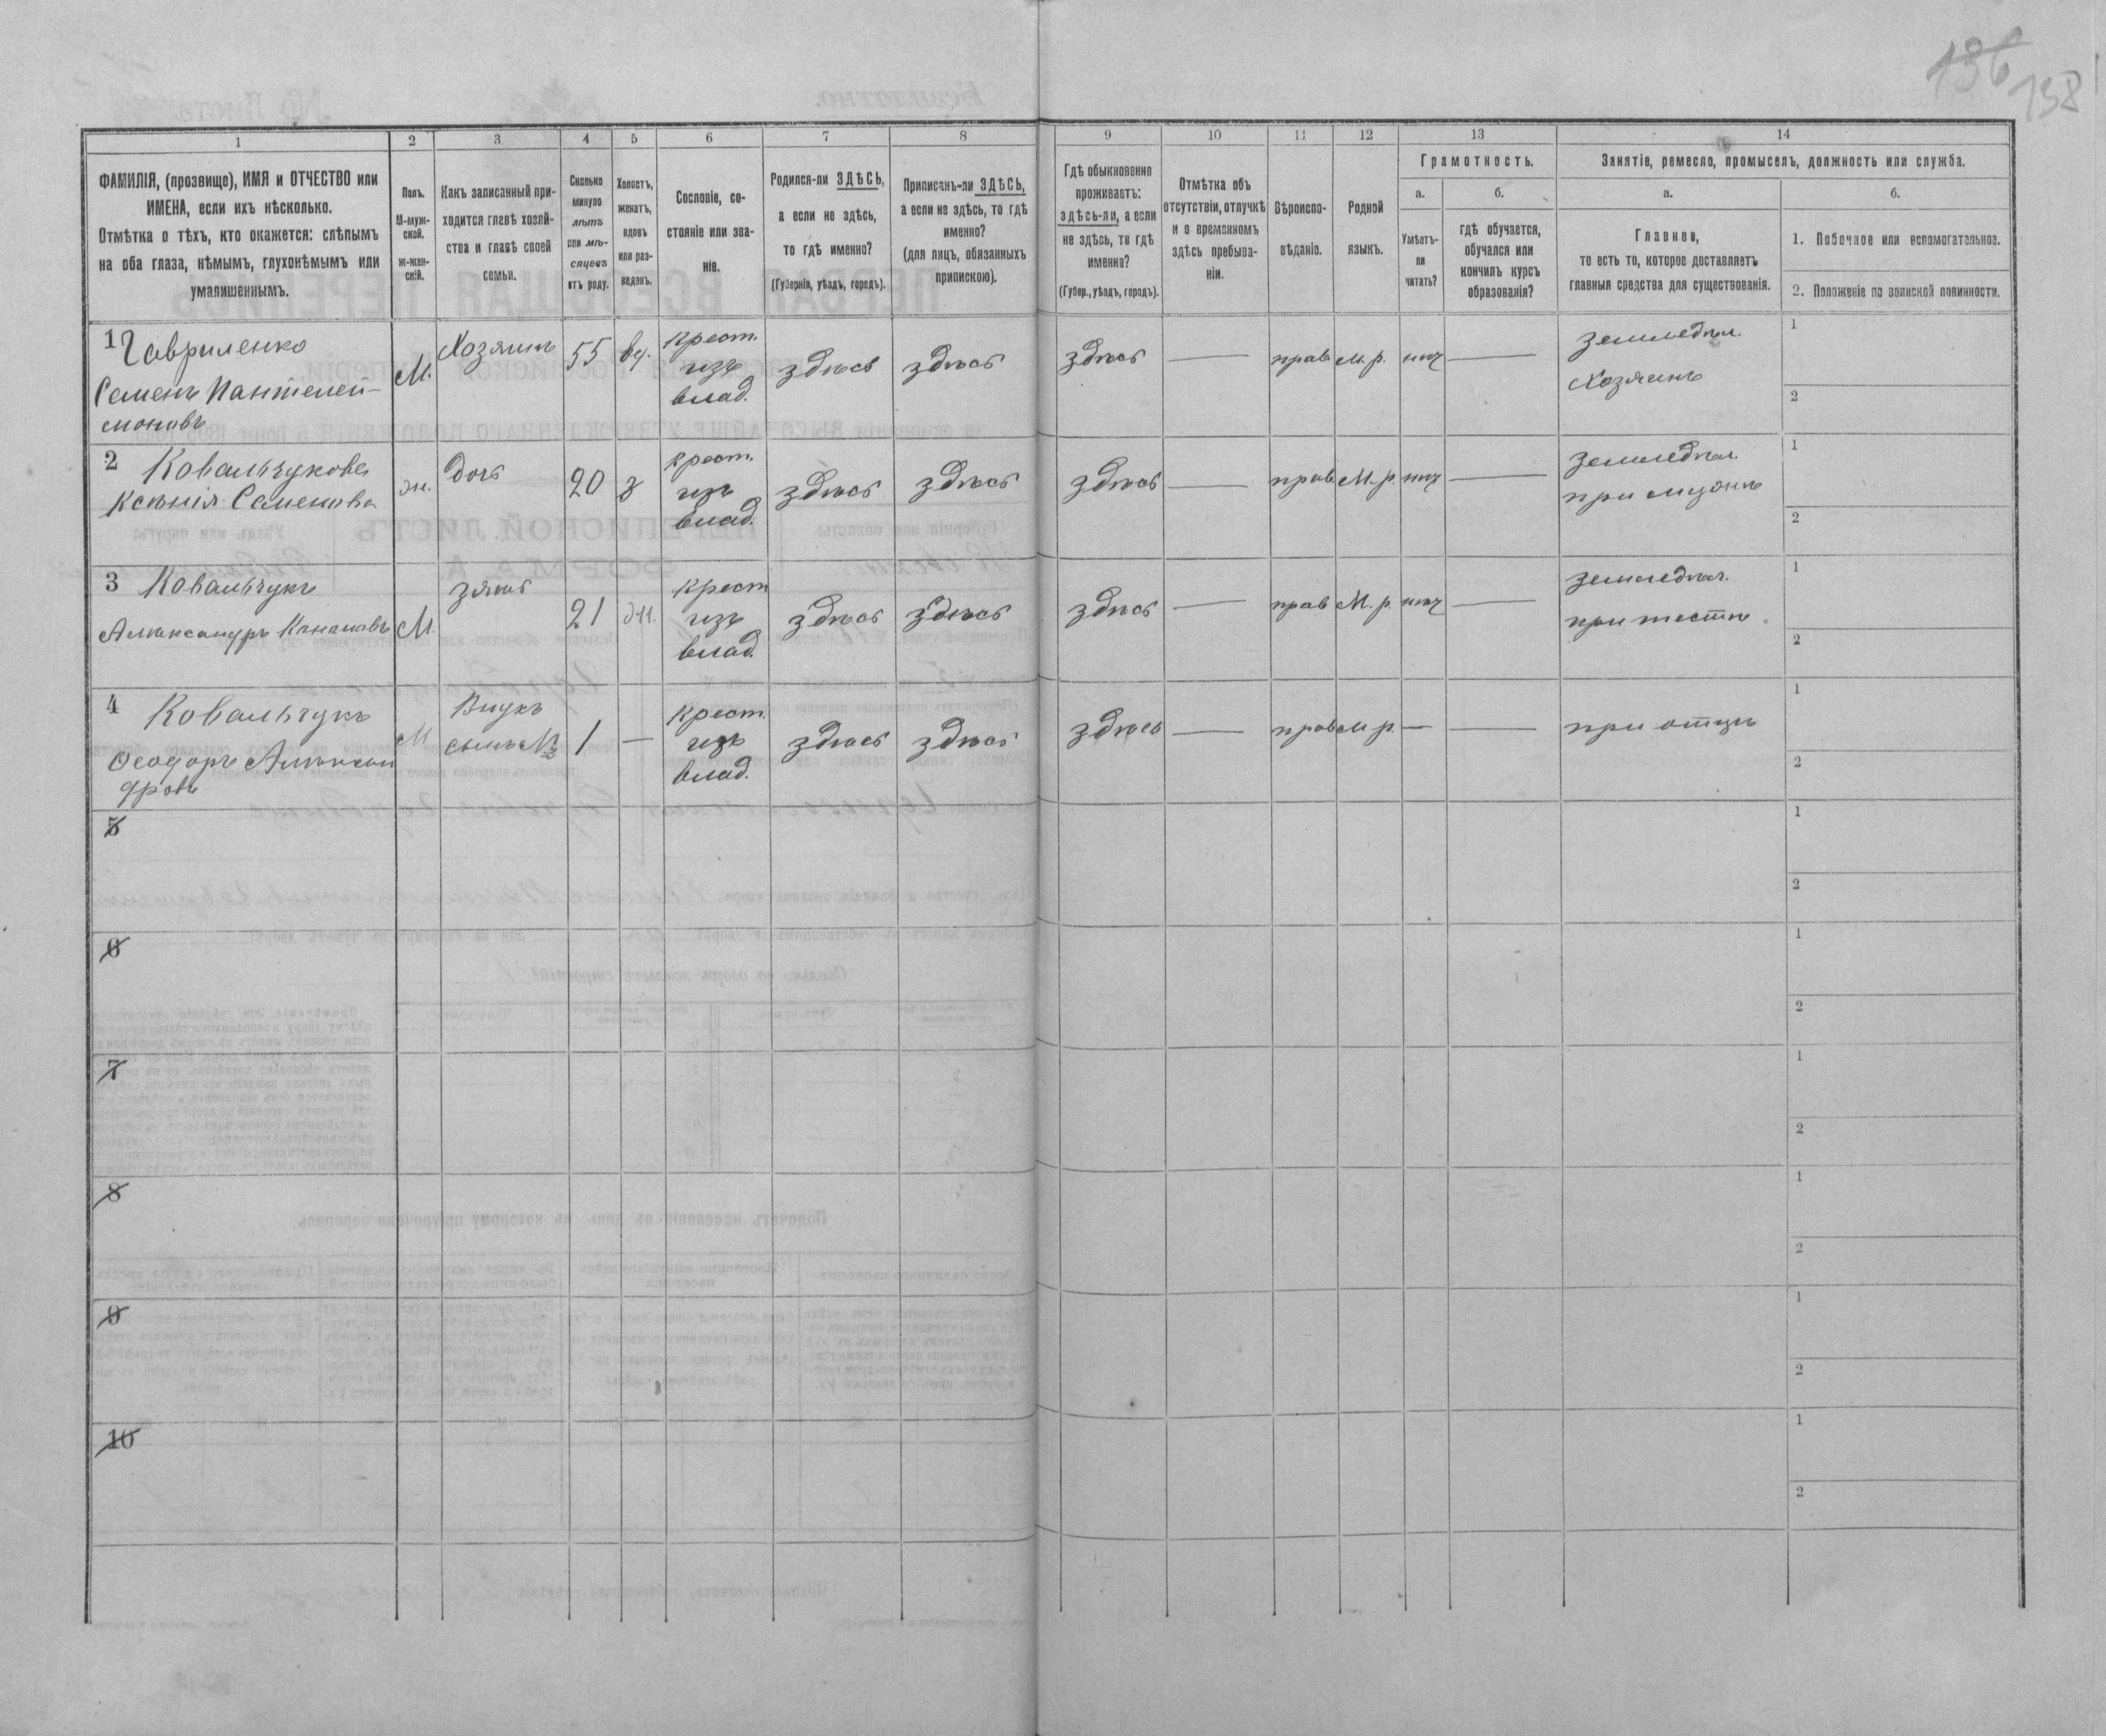 136
138
1
2
3
4
5
6
7
8
ФАМИЛІЯ, (прозвище), ИМЯ и ОТЧЕСТВО или
ИМЕНА, если ихъ нѣсколько.
Отмѣтка о тѣхъ, кто окажется: слѣпымъ
на оба глаза, нѣмымъ, глухонѣмымъ или
умалишеннымъ.
Полъ.
М-муж-
ской.
ж-жен-
скій.
Какъ записанный при-
ходится главѣ хозяй-
ства и главѣ своей
семьи.
Сколько
минуло
лѣтъ
или мѣ-
сяцевъ
отъ роду.
Холостъ,
женатъ,
вдовъ
или раз-
веденъ.
Сословіе, со-
стояніе или зва-
ніе.
Родился-ли ЗДѢСЬ,
а если не здѣсь,
то гдѣ именно?
(Губернія, уѣздъ, городъ).
Приписанъ-ли ЗДѢСЬ,
а если не здѣсь, то гдѣ
именно?
(для лицъ, обязанныхъ
припискою).
9
10
11
12
13
14
Гдѣ обыкновенно
проживаетъ:
здѣсь-ли, а если
не здѣсь, то гдѣ
именно?
(Губер., уѣздъ, городъ).
Отмѣтка объ
отсутствіи, отлучкѣ
и о временномъ
здѣсь пребыва-
ніи.
Вѣроиспо-
вѣданіе.
Родной
языкъ.
Грамотность.
а.
Умѣетъ-
ли
читать?
б.
гдѣ обучается,
обучался или
кончилъ курсъ
образованія?
Занятіе, ремесло, промыселъ, должность или служба.
а.
Главное,
то есть то, которое доставляетъ
главныя средства для существованія.
б.
1. Побочное или вспомогательное.
2. Положеніе по воинской повинности.
1 Гавриленко
Семенъ Пантелей-
моновъ
М.
Хозяинъ
55
вд.
крест.
изъ
влад.
здѣсь
здѣсь
здѣсь
—
прав
м. р.
нѣт
—
земледѣл.
Хозяинъ
1
2
2 Ковальчукова
Ксенія Семенова
ж.
дочь
20
з
крест.
изъ
влад.
здѣсь
здѣсь
здѣсь
—
прав.
М. р.
нѣт
—
земледѣл.
при мужѣ
1
2
3 Ковальчукъ
Александръ Канановъ
М.
зять
21
ж.
крест
изъ
влад.
здѣсь
здѣсь
здѣсь
—
прав
М. р.
нѣт
—
земледѣл.
при тестѣ
1
2
4 Ковальчукъ
Ѳеодоръ Алексан
дровъ
М
Внукъ
сынъ №3
1
—
крест.
изъ
влад.
здѣсь
здѣсь
здѣсь
—
прав
м р.
—
—
при отцѣ
1
2
5
1
2
6
1
2
7
1
2
8
1
2
9
1
2
10
1
2